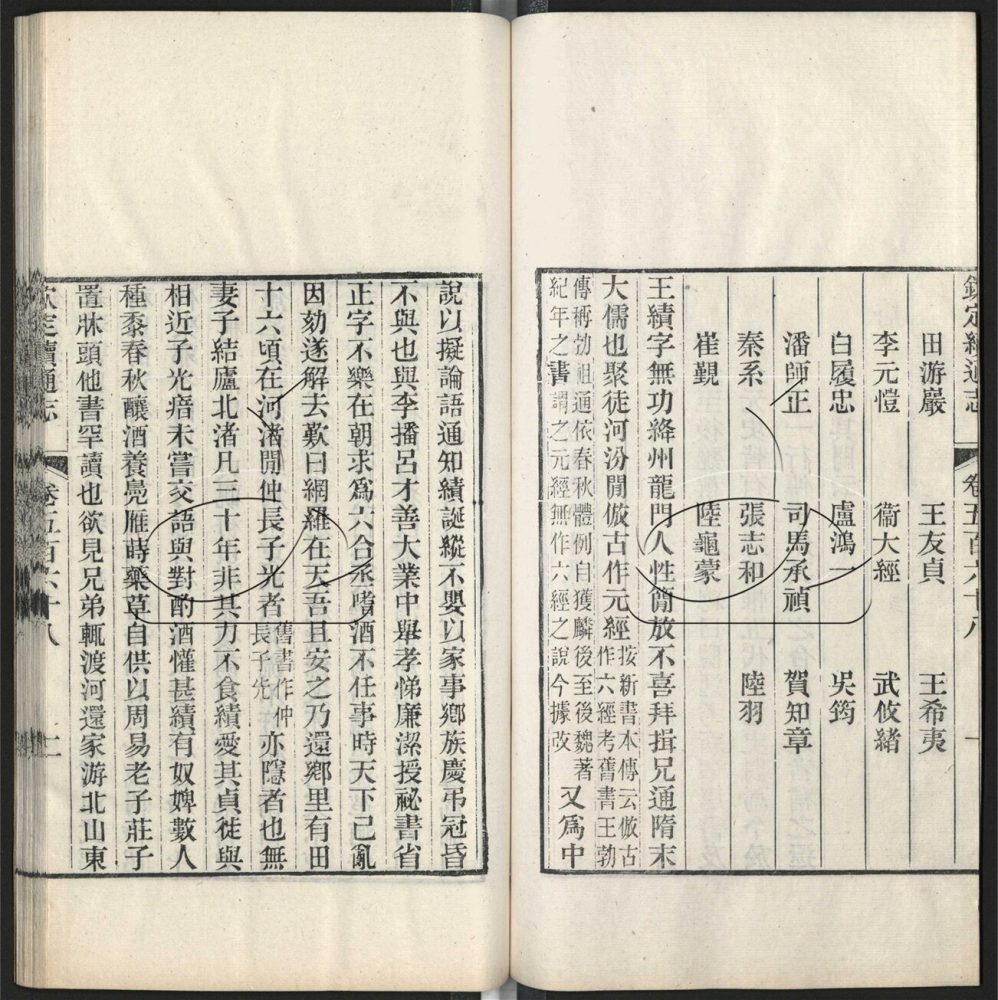 欽定續通志 卷五百六十八 一
田游巖 王友貞 王希夷
李元愷 衞大經 武攸緒
白履忠 盧鴻一 吳筠
潘師正 司馬承禎 賀知章
秦系 張志和 陸羽
崔覲 陸龜蒙
王績字無功絳州龍門人性簡放不喜拜揖兄通隋末
大儒也聚徒河汾閒倣古作元經按新書本傳云倣古作六經考舊書王勃
傳稱勃祖通依春秋體例自獲麟後至後魏著紀年之書謂之元經無作六經之說今據改又爲中
說以擬論語通知績誕縱不嬰以家事鄉族慶弔冠昏
不與也與李播呂才善大業中舉孝悌廉潔授祕書省
正字不樂在朝求爲六合丞嗜酒不任事時天下已亂
因劾遂解去歎曰網羅在天吾且安之乃還鄉里有田
十六頃在河渚閒仲長子光者舊書作仲長子先亦隱者也無
妻子結廬北渚凡三十年非其力不食績愛其貞徙與
相近子光瘖未嘗交語與對酌酒懽甚績有奴婢數人
種黍春秋釀酒養鳧雁蒔藥草自供以周易老子莊子
置牀頭他書罕讀也欲見兄弟輒渡河還家游北山東
欽定續通志 卷五百六十八 二